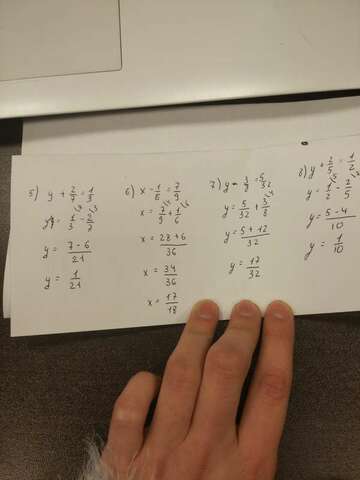 5) y + 2/7 = 1/3
y = 1/3 - 2/7
y = 7-6/21
y = 1/21
6) x - 1/6 = 7/9
x = 7/9 + 1/6
x = 28+6/36
x = 34/36
x = 17/18
7) y - 3/8 = 5/32
y = 5/32 + 3/8
y = 5+12/32
y = 17/32
8) y + 2/5 = 1/2
y = 1/2 - 2/5
y = 5-4/10
y = 1/10